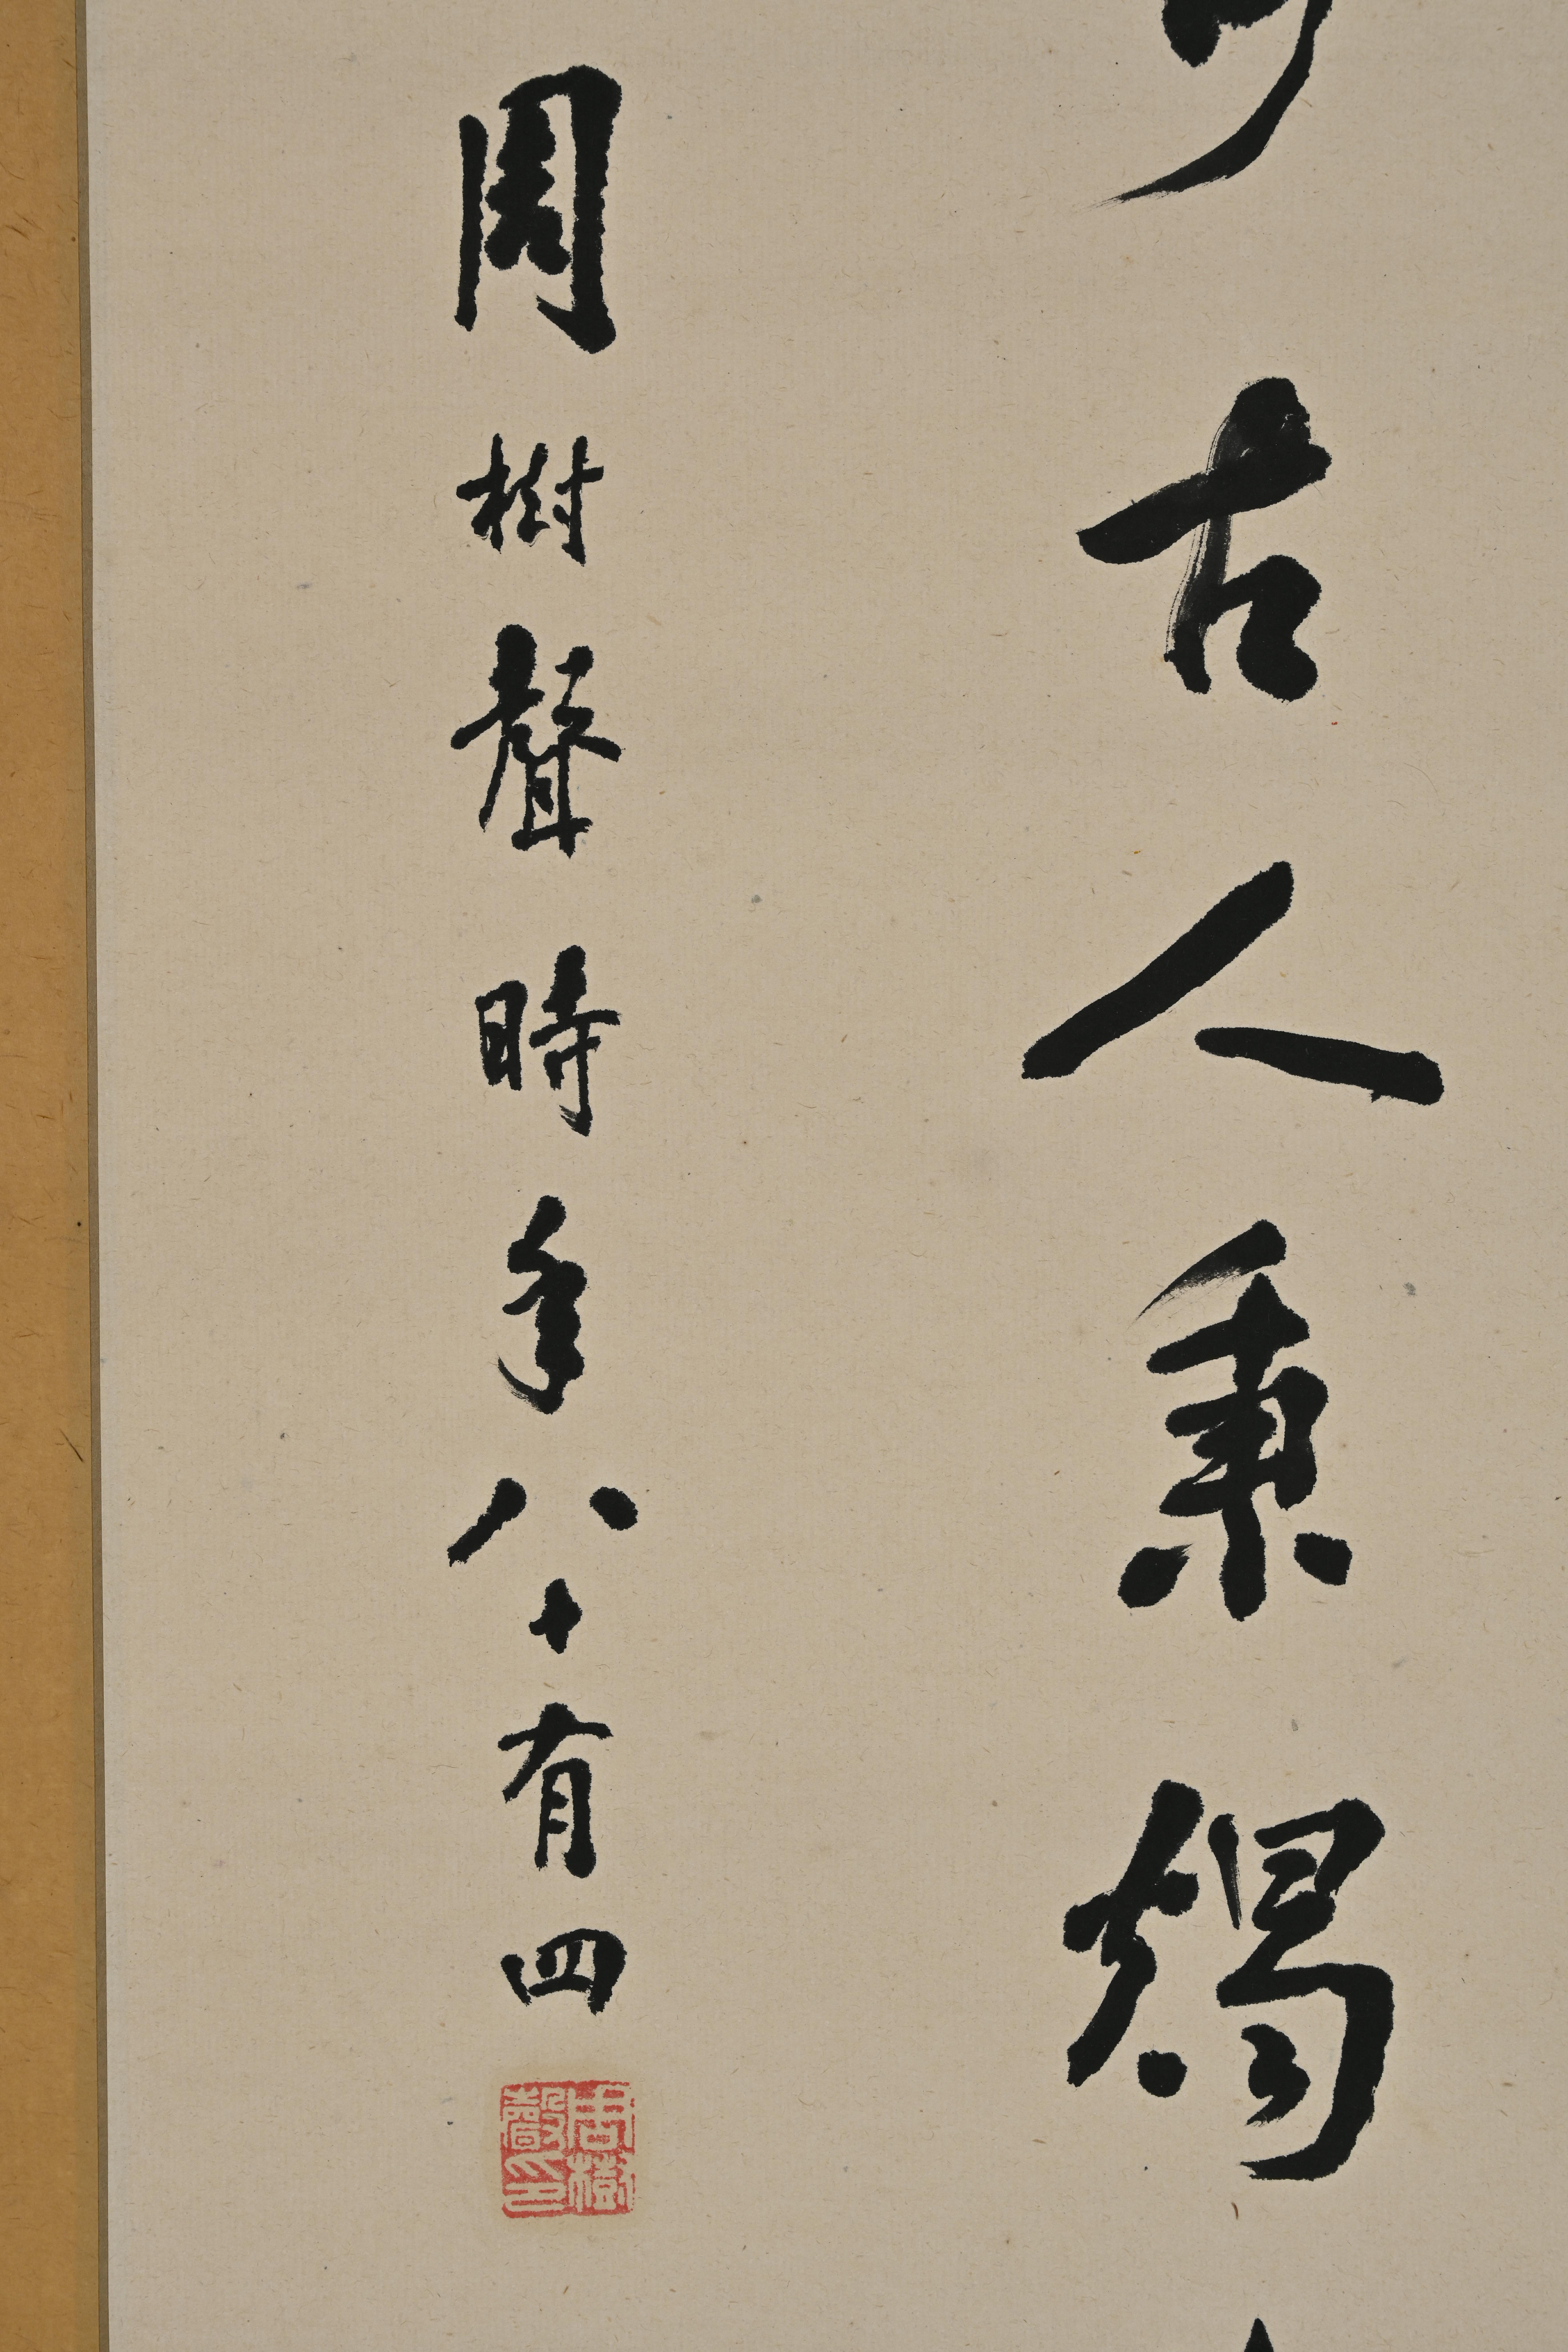 古人秉燭
周樹聲時年八十有四
周樹聲印